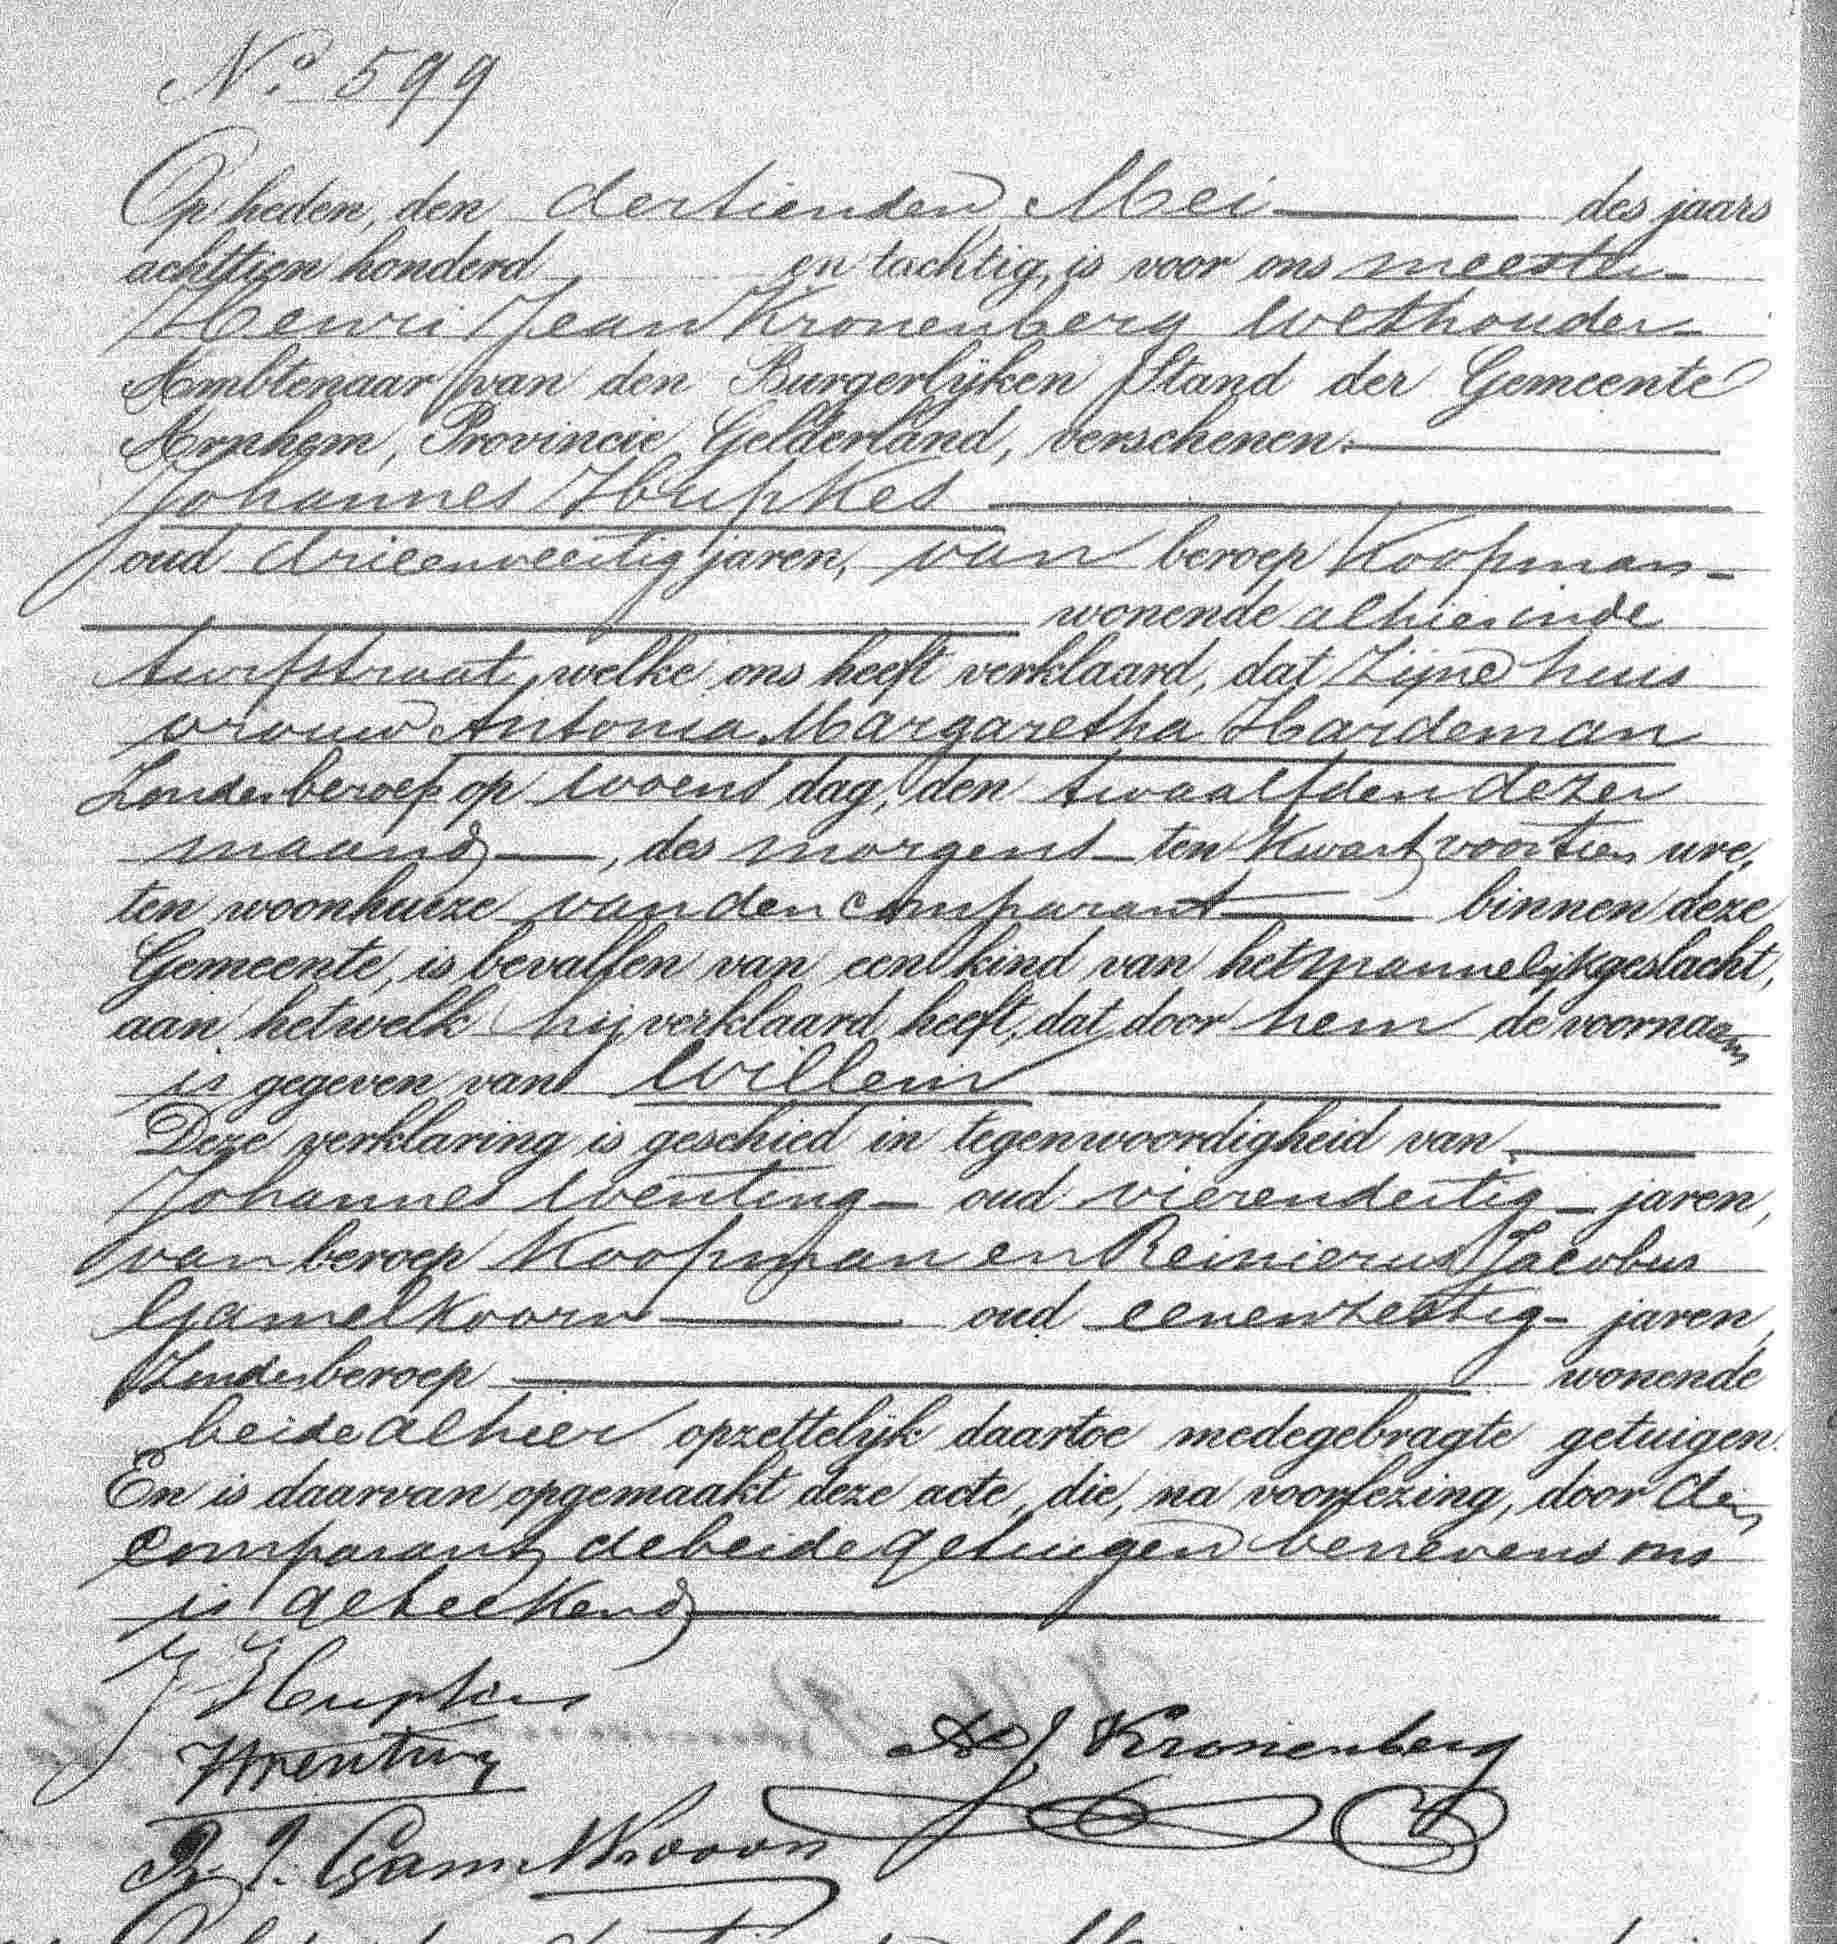 No. 599
Op heden, den dertienden Mei des jaars
achttien honderd en tachtig, is voor ons meester
Henri Jean Kronenberg Wethouder
Ambtenaar van den Burgerlijken Stand der Gemeente
Arnhem, Provincie Gelderland, verschenen:
Johannes Hupkes
oud drieenveertig jaren, van beroep Koopman
wonende alhier in de
turfstraat, welke ons heeft verklaard, dat zijne huis
vrouw Antonia Margaretha Hardeman
Zonder beroep op woensdag, den twaalfden dezer
maand, des morgens ten Kwart voor tien ure,
ten woonhuize van den comparant binnen deze
Gemeente, is bevallen van een kind van het mannelijk geslacht,
aan hetwelk hij verklaard heeft, dat door hem de voornaam
is gegeven van Willem
Deze verklaring is geschied in tegenwoordigheid van
Johannes Wenting oud vierendertig jaren,
van beroep Koopman en Reinierus Jacobus
Gamelkoorn oud eenenzestig jaren,
Zonder beroep wonende
beide alhier opzettelijk daartoe medegebragte getuigen.
En is daarvan opgemaakt deze acte, die, na voorlezing, door den
comparant, de beide getuigen benevens ons
is geteekend
J Hupkes
Wenting
HJ Kronenberg
R. J. Gamelkoorn